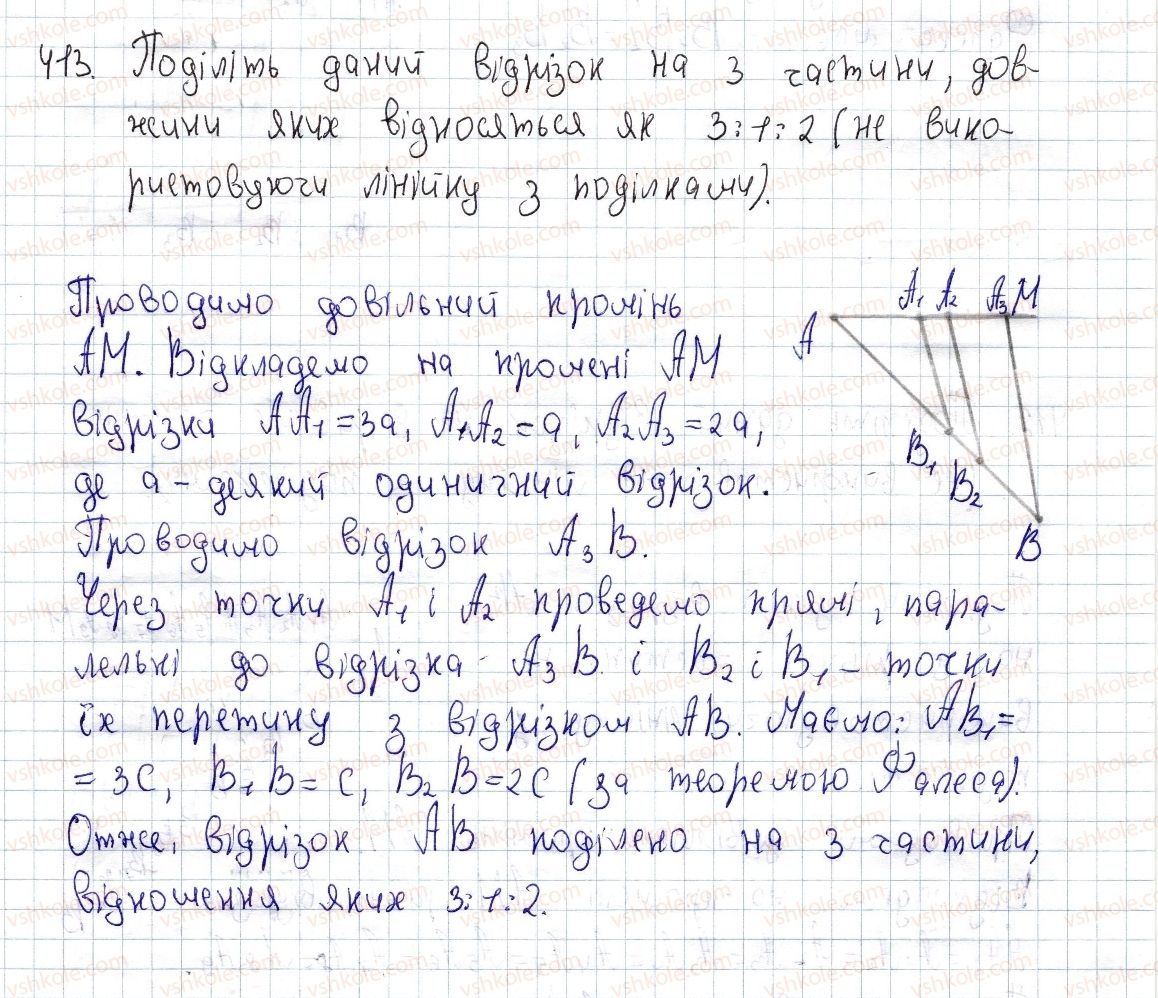 413. Поділіть даний відрізок на 3 частини, дов-
жини яких відносяться як 3:1:2 (не вико-
ристовуючи лінійку з поділками).
Проводимо довільний промінь
АМ. Відкладемо на промені АМ
відрізки AA₁=3a, A₁A₂=a, A₂A₃=2a,
де a - деякий одиничний відрізок.
Проводимо відрізок A₃B.
Через точки A₁ і A₂ проведемо прямі, пара-
лельні до відрізка A₃B і B₂ і B₁ - точки
їх перетину з відрізком AB. Маємо: AB₁=
= 3c, B₁B = c, B₂B = 2c (за теоремою Фалеса).
Отже, відрізок AB поділено на 3 частини,
відношення яких 3:1:2.
A A₁ A₂ A₃ M
B₁ B₂ B
vshkole.com